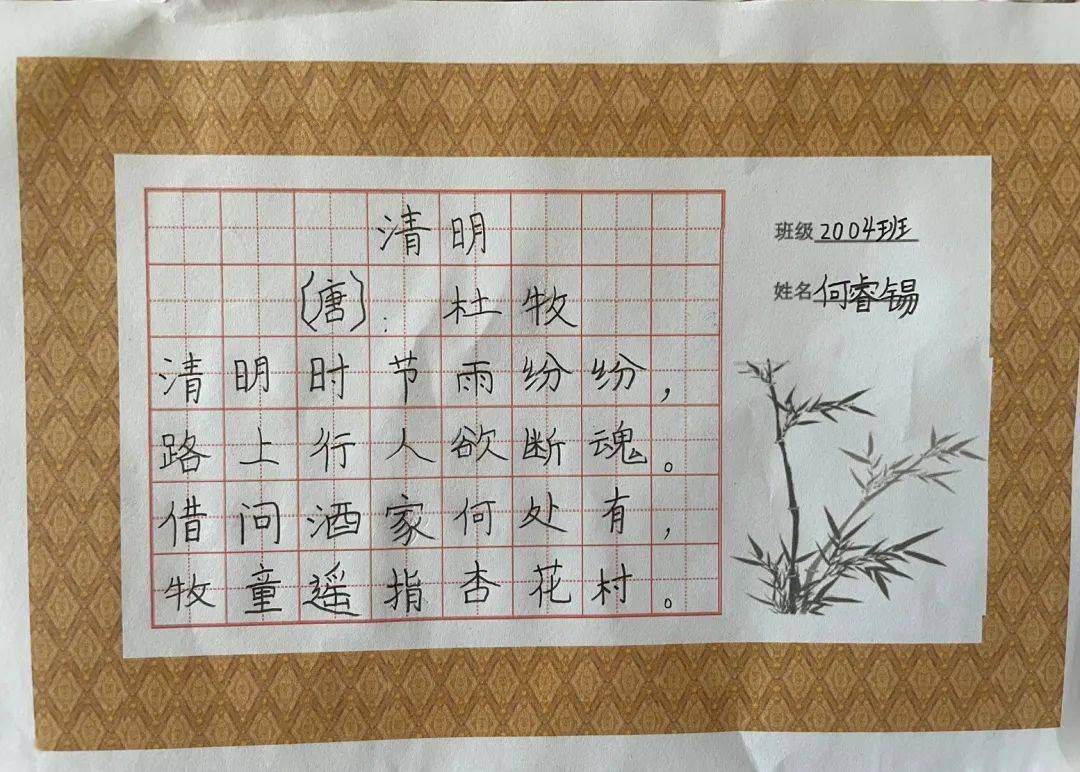 清明
〔唐〕: 杜牧
清明时节雨纷纷,
路上行人欲断魂。
借问酒家何处有,
牧童遥指杏花村。
班级2004班
姓名何睿锡